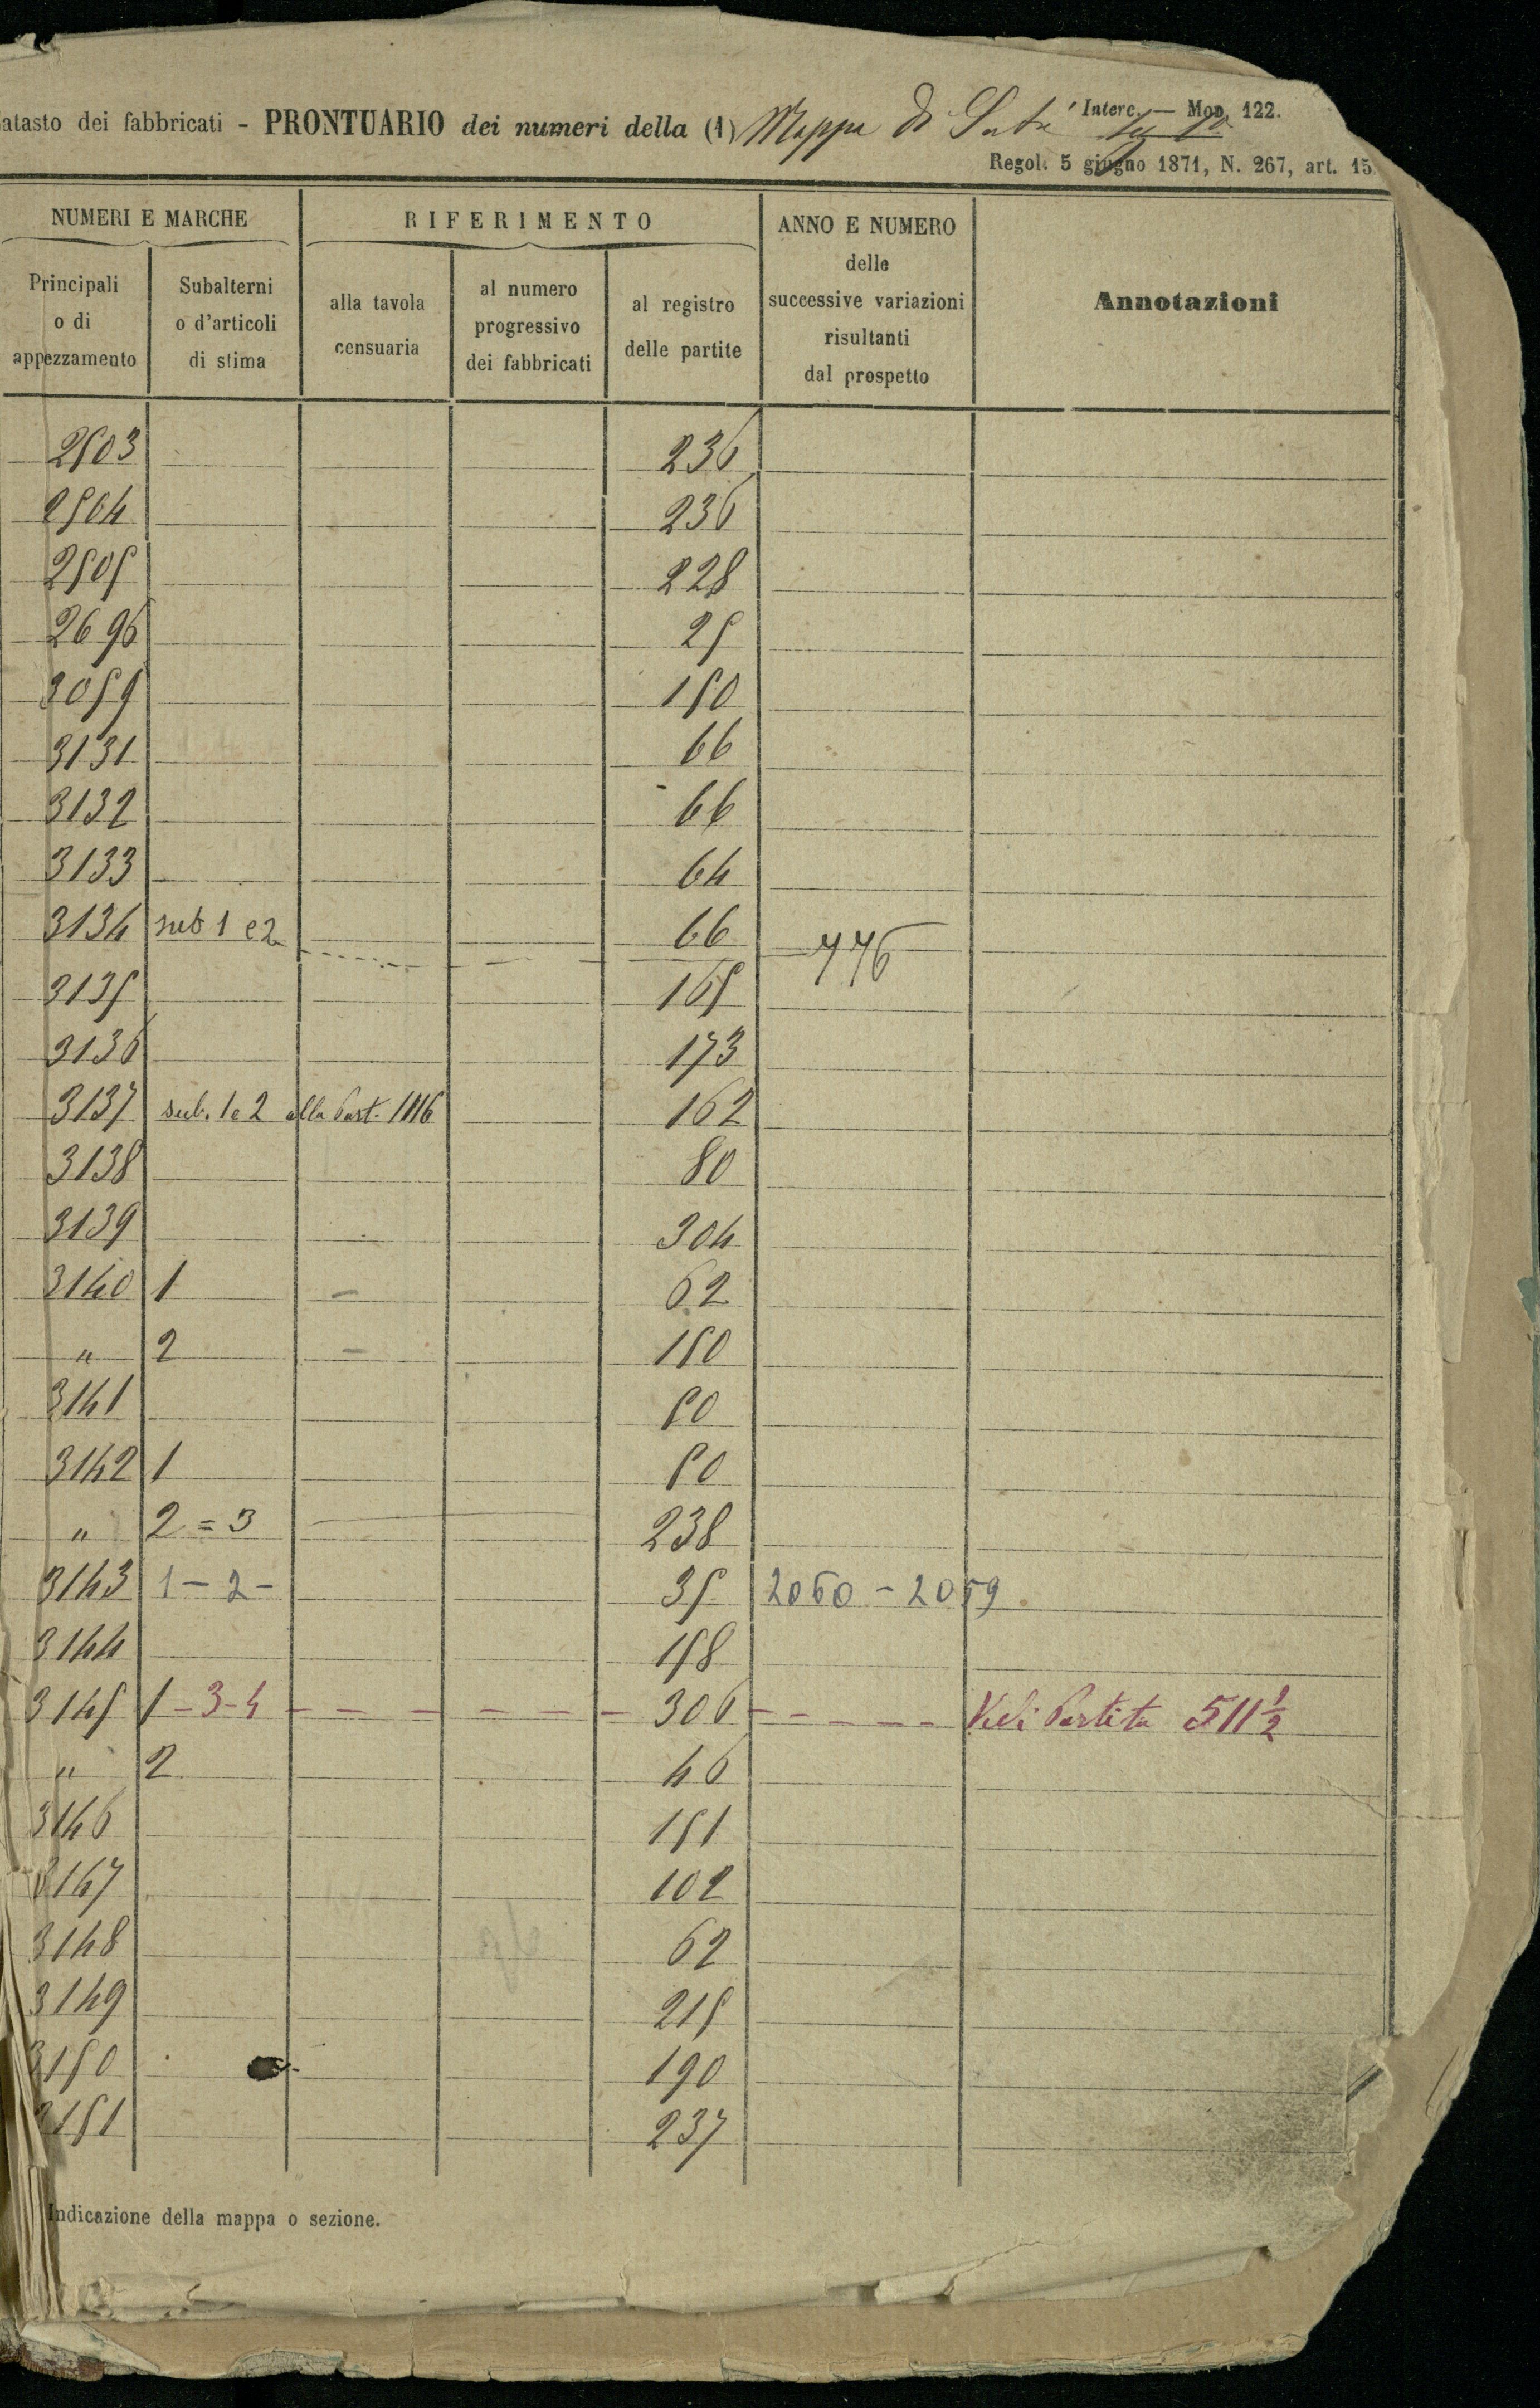 atasto dei fabbricati - PRONTUARIO dei numeri della (1) Mappa di
Interc. — Mod. 122.
Regol. 5 giugno 1871, N. 267, art. 15.
NUMERI E MARCHE
RIFERIMENTO
ANNO E NUMERO
delle
successive variazioni
risultanti
dal prospetto
Annotazioni
Principali
o di
appezzamento
Subalterni
o d'articoli
di stima
alla tavola
censuaria
al numero
progressivo
dei fabbricati
al registro
delle partite
2503 236
2504 236
2505 228
2696 25
3059 150
3131 66
3132 66
3133 64
3134 sub 1 e 2 66 776
3135 165
3136 173
3137 sub. 1 e 2 alla Part. 1116 162
3138 80
3139 304
3140 1 62
" 2 150
3141 50
3142 1 50
" 2 = 3 238
3143 1 - 2 - 35 2060 - 2059
3144 158
3145 1 - 3 - 4 - - - - - 306 - - - - - Vedi Partita 511 ½
" 2 46
3146 151
3147 102
3148 62
3149 215
3150 190
3151 237
Indicazione della mappa o sezione.